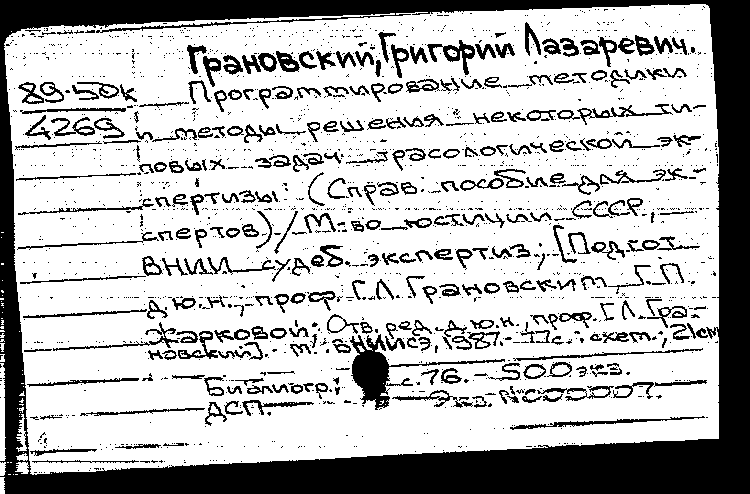 Грановский, Григорий Лазаревич.
89-50к
4269
Программирование методики
и методы решения некоторых ти-
повых задач трасологической эк-
спертизы: (Справ. пособие для эк-
спертов) / М-во юстиции СССР,
ВНИИ судеб. экспертиз.; [Подгот.
д.ю.н., проф. Г.Л. Грановским, Г.П.
Жарковой; Отв. ред. д.ю.н., проф. Г.Л. Гра-
новский]. - М.: ВНИИСЭ, 1987.- 77с.: схем.; 21см
Библиогр.: с. 76. - 500 экз.
ДСП. Экз. N 000007.